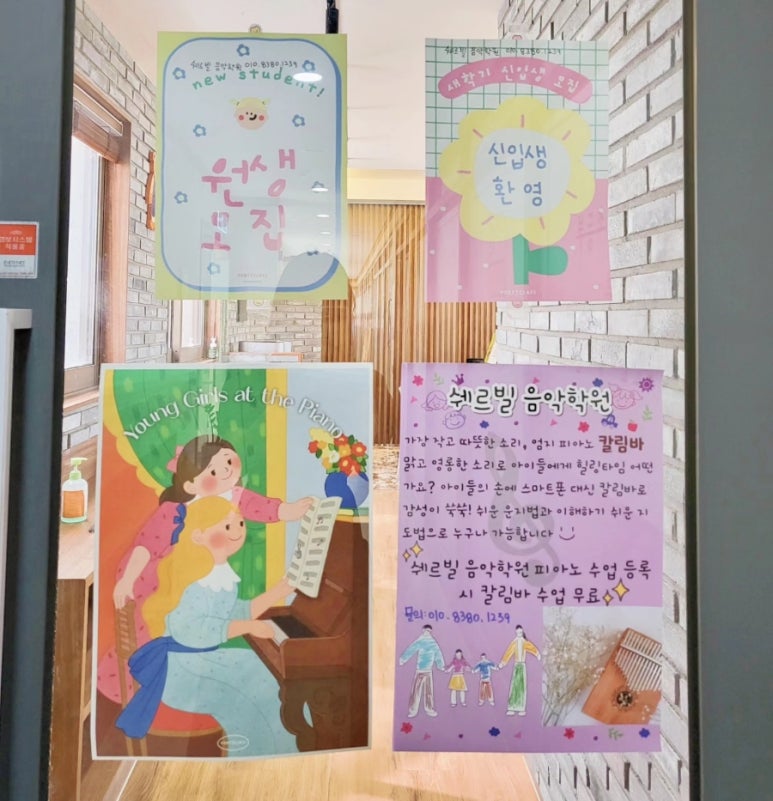 쉐르빌 음악학원 010.8380.1239
new student!
원생
모집
쉐르빌 음악학원 010.8380.1239
새학기 신입생 모집
신입생
환영
Young Girls at the Piano
쉐르빌 음악학원
가장 작고 따뜻한 소리, 엄지 피아노 칼림바
맑고 영롱한 소리로 아이들에게 힐링타임 어떤
가요? 아이들의 손에 스마트폰 대신 칼림바로
감성이 쑥쑥! 쉬운 운지법과 이해하기 쉬운 지
도법으로 누구나 가능합니다
쉐르빌 음악학원 피아노 수업 등록
시 칼림바 수업 무료
문의: 010.8380.1239